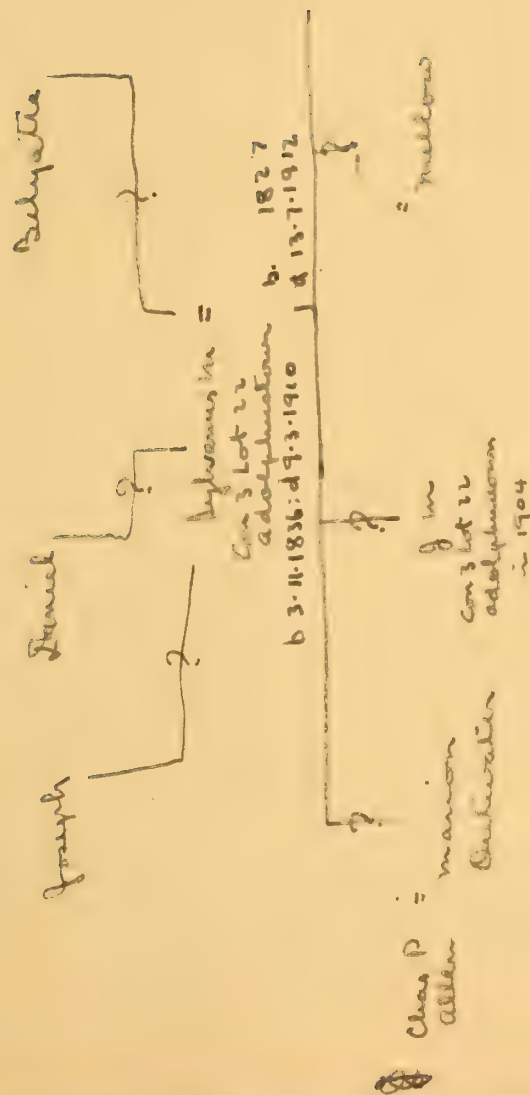 Joseph
Daniel
?
?
?
Sylvanus M =
Con 3 Lot 22
adolphustown
b 3-11-1836: d 9-3-1910
b. 1827
d 13-7-1912
?
?
?
Chas P =
Allen
Marion
J M
Con 3 Lot 22
adolphustown
in 1904
=